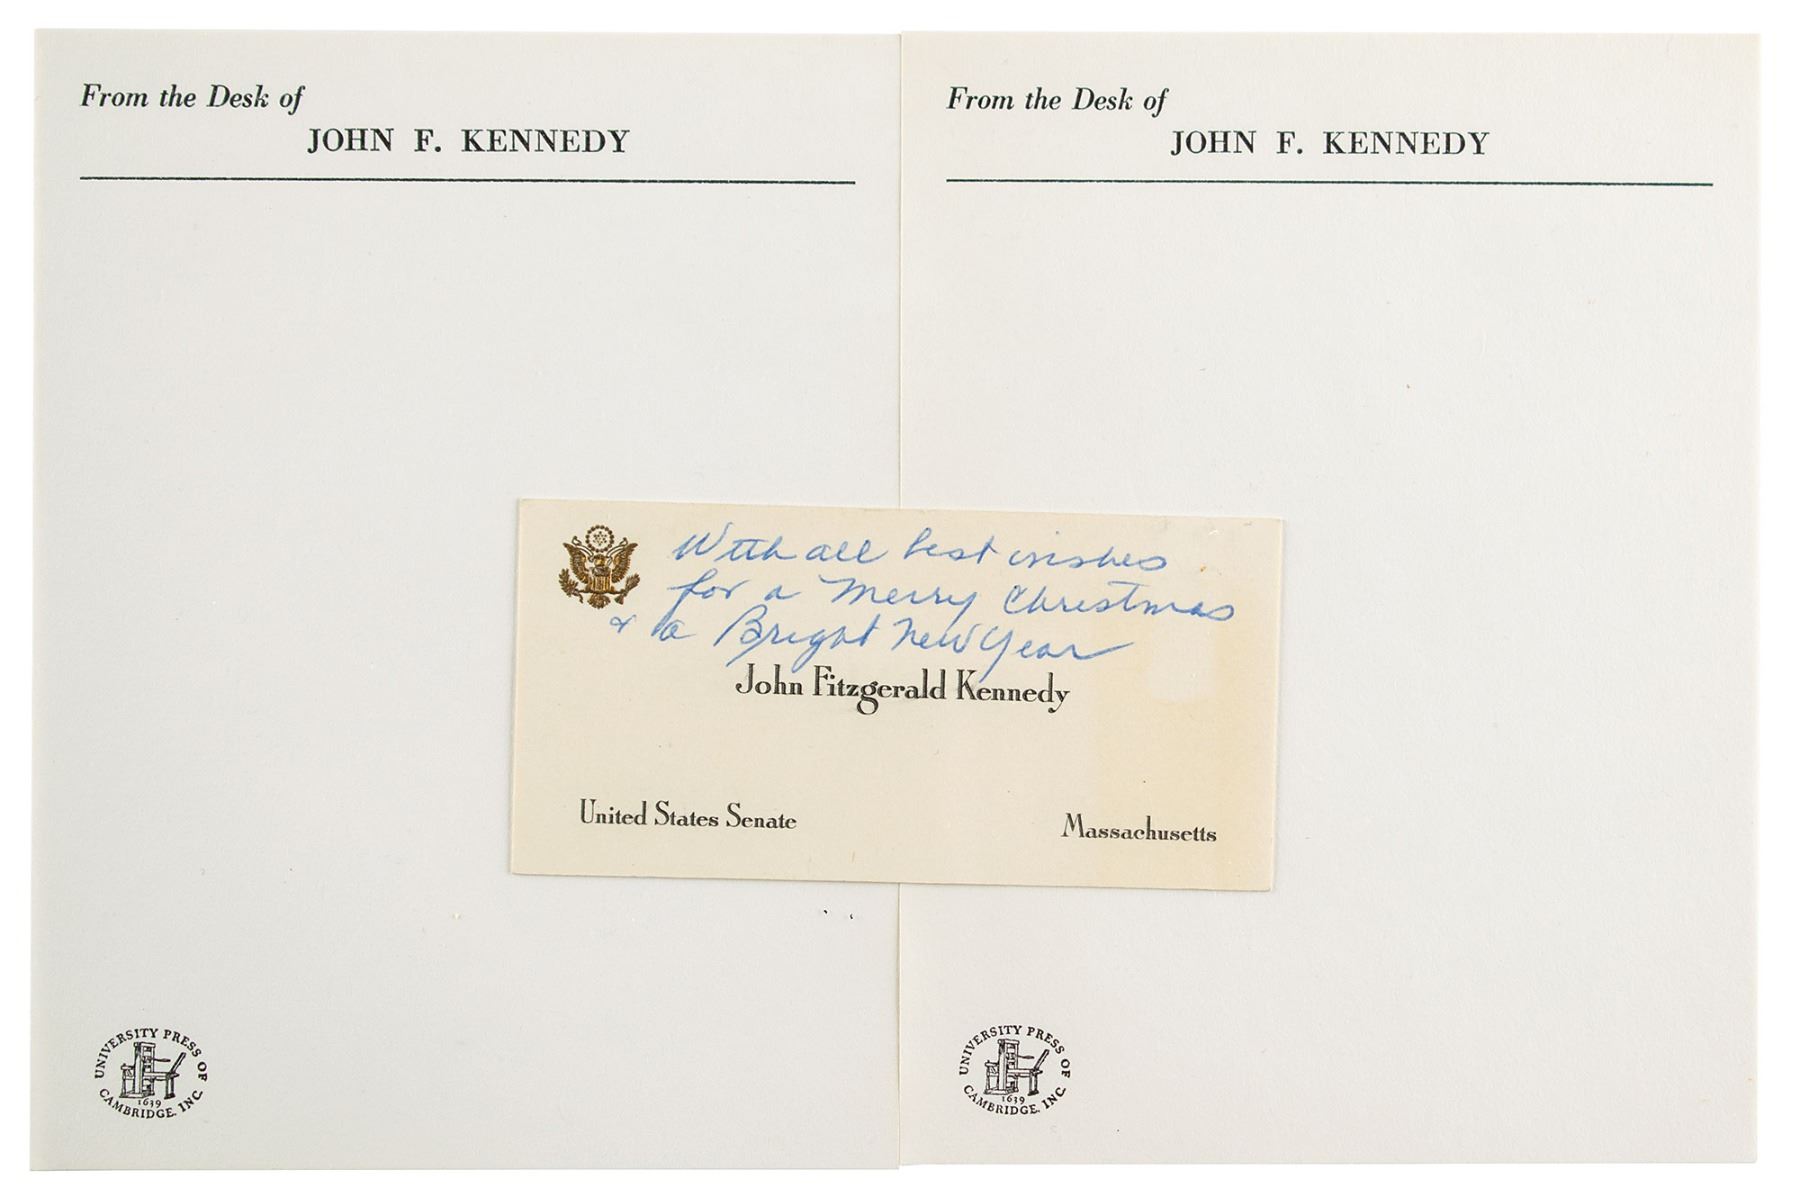 From the Desk of
JOHN F. KENNEDY
From the Desk of
JOHN F. KENNEDY
With all best wishes
for a Merry Christmas
& a Bright New Year
John Fitzgerald Kennedy
United States Senate
Massachusetts
UNIVERSITY PRESS OF
CAMBRIDGE, INC.
1639
UNIVERSITY PRESS OF
CAMBRIDGE, INC.
1639